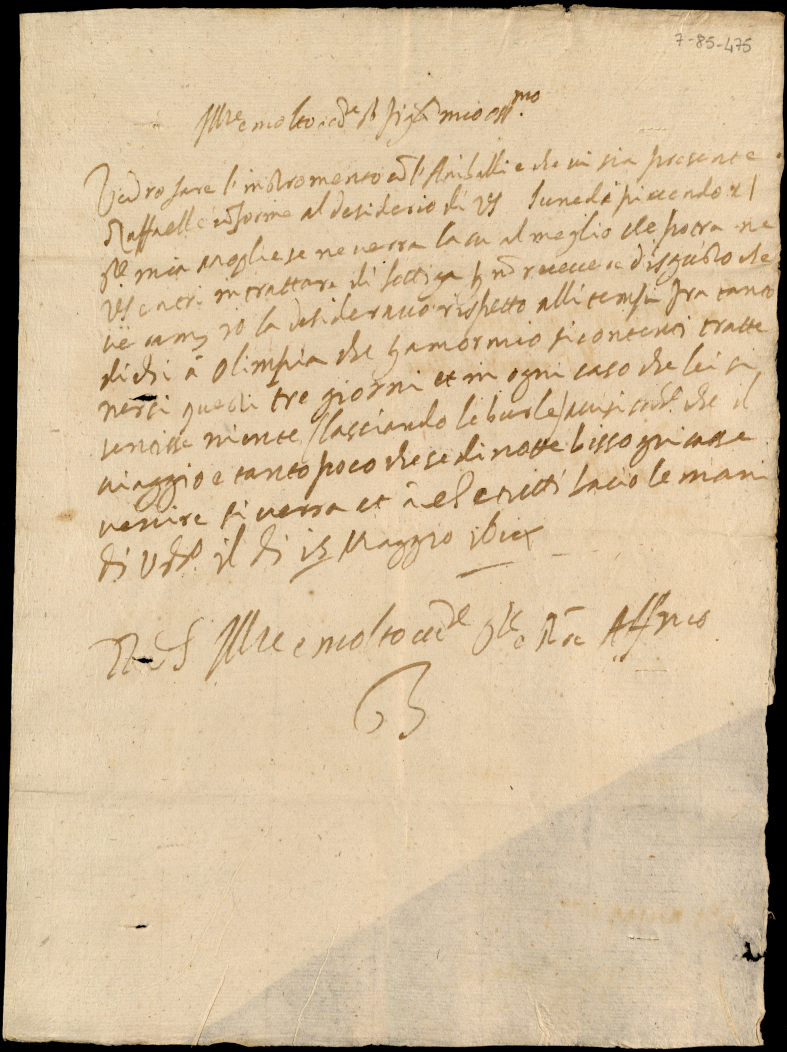 7-85-475
Ill.re e molto ecc.te S.r mio oss.mo
Vedrò fare l'instromento con l'Aniballi e che vi sia presente
Raffaelle conforme al desiderio di VS lunedì piacendo al
mia moglie se ne verrà la su al meglio che potrà ne
VS entri in trattare di lettiga non ricevere disgusto che
io la desideravo rispetto alli tempi fra tanto
dichi à Olimpia che p amor mio si contenti tratte
nersi questi tre giorni et in ogni caso che lei si
sentisse niente (lasciando le burle) avisi che il
viaggio è tanto poco che se di notte bisognasse
venire si verrà et à lei e tutti bacio le mani
di il dì 15 Maggio
Di VS Ill.re e molto ecc.te e Aff.mo